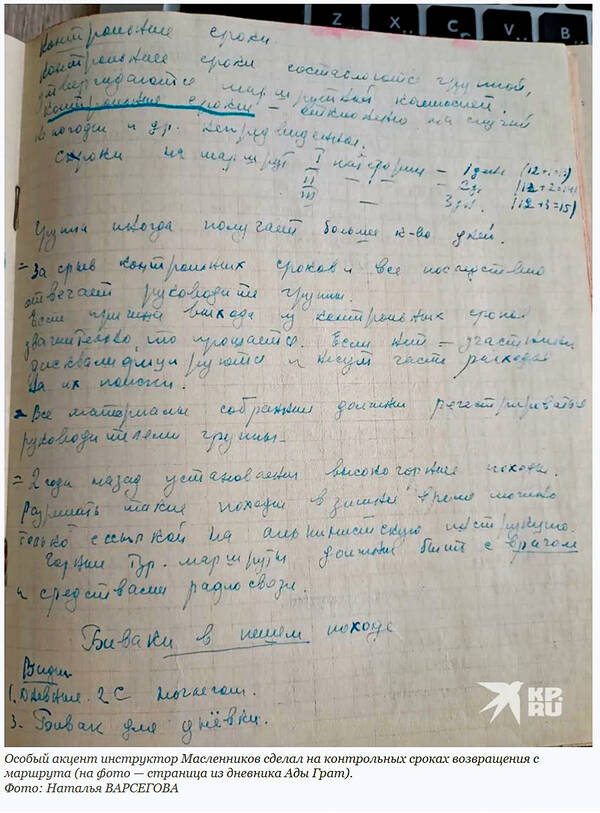 Z X C V
Контрольные сроки.
Контрольные сроки составляются группой,
утверждаются маршрутной комиссией.
Контрольные сроки – отклонено на случай
непогоди и др. непредвиденн.
Сроки на маршрут I категории – 1 день (12+1=13)
II – " – – 2 д. (12+2=14)
III – 3 дн. (12+3=15)
Группа иногда получает большее к-во дней.
= За срыв контрольных сроков и все последствия
отвечает руководитель группы.
Если причина выхода из контрольных сроков
значительно, то прощается. Если нет – участники
дисквалифицируются и несут часть расходов
на их поиски.
= Все материалы собрания должны регистрироваться
руководителем группы.
= 2 года назад установлены высокогорные походы.
Разрешать такие походы в зимнее время можно
только ссылкой на альпинистскую инструкцию.
Горные тур. маршруты должны быть с врачом
и средствами радиосвязи.
Биваки в пешем походе
Виды
1. Дневные. 2 С ночлегом.
3. Бивак для днёвки.
KP.RU
Особый акцент инструктор Масленников сделал на контрольных сроках возвращения с
маршрута (на фото — страница из дневника Ады Грат).
Фото: Наталья ВАРСЕГОВА